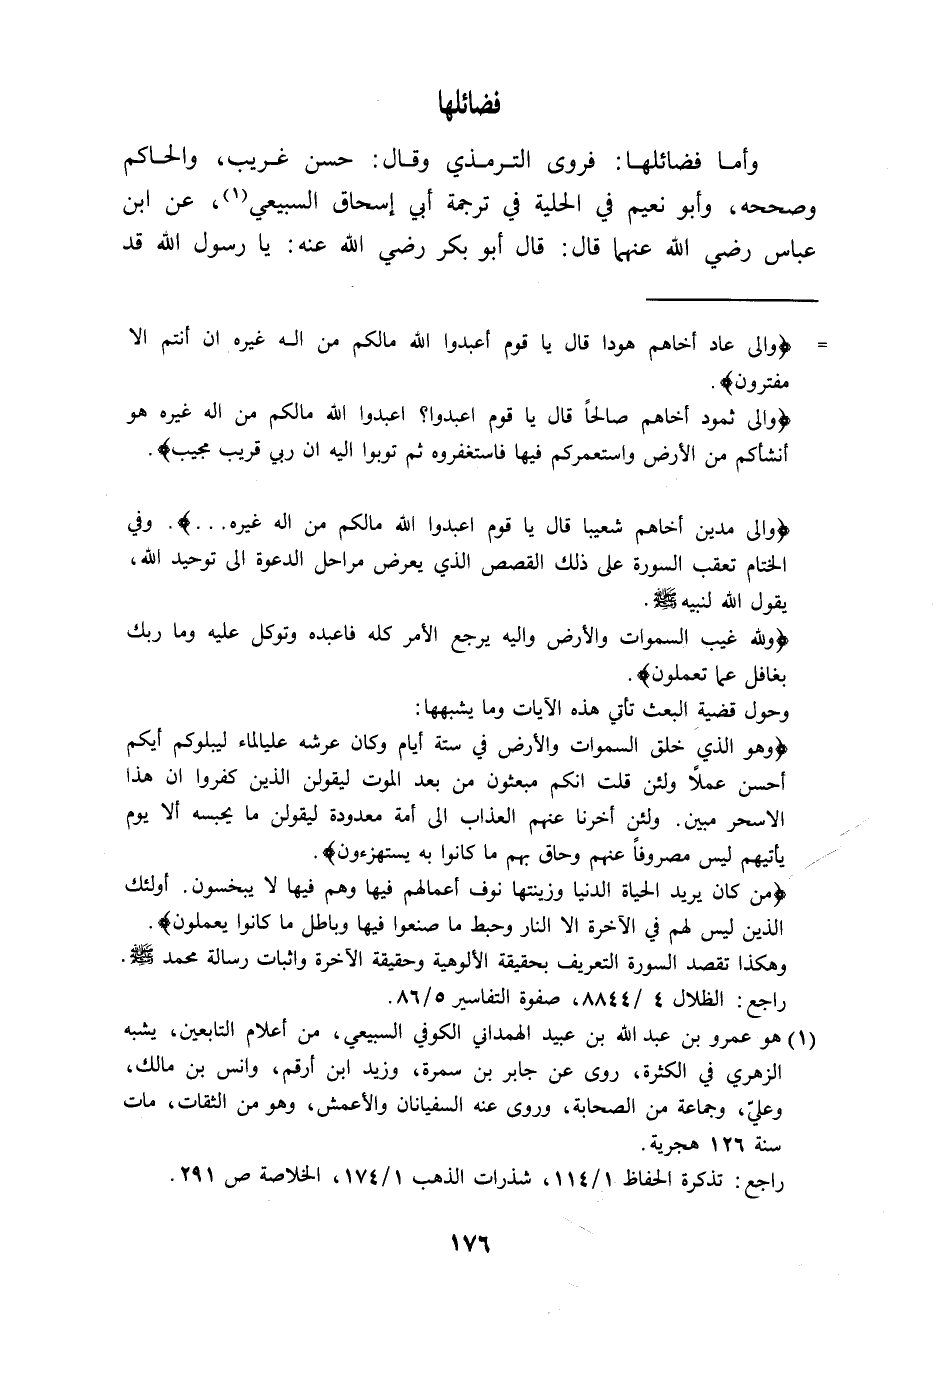 فضائلها
وأما فضائلها: فروى الترمذي وقال: حسن غريب، والحاكم
وصححه، وأبو نعيم في الحلية في ترجمة أبي إسحاق السبيعي(١)، عن ابن
عباس رضي الله عنهما قال: قال أبو بكر رضي الله عنه: يا رسول الله قد
= ﴿والى عاد أخاهم هودا قال يا قوم أعبدوا الله مالكم من الـه غيره ان أنتم الا
مفترون﴾.
﴿والى ثمود أخاهم صالحاً قال يا قوم اعبدوا؟ اعبدوا الله مالكم من اله غيره هو
أنشأكم من الأرض واستعمركم فيها فاستغفروه ثم توبوا اليه ان ربي قريب مجيب﴾.
﴿والى مدين أخاهم شعيبا قال يا قوم اعبدوا الله مالكم من اله غيره...﴾. وفي
الختام تعقب السورة على ذلك القصص الذي يعرض مراحل الدعوة الى توحيد الله،
يقول الله لنبيه ﷺ.
﴿ولله غيب السموات والأرض واليه يرجع الأمر كله فاعبده وتوكل عليه وما ربك
بغافل عما تعملون﴾.
وحول قضية البعث تأتي هذه الآيات وما يشبهها:
﴿وهو الذي خلق السموات والأرض في ستة أيام وكان عرشه علىالماء ليبلوكم أيكم
أحسن عملاً ولئن قلت انكم مبعثون من بعد الموت ليقولن الذين كفروا ان هذا
الاسحر مبين. ولئن أخرنا عنهم العذاب الى أمة معدودة ليقولن ما يحبسه ألا يوم
يأتيهم ليس مصروفاً عنهم وحاق بهم ما كانوا به يستهزءون﴾.
﴿من كان يريد الحياة الدنيا وزينتها نوف أعمالهم فيها وهم فيها لا يبخسون. أولئك
الذين ليس لهم في الآخرة الا النار وحبط ما صنعوا فيها وباطل ما كانوا يعملون﴾.
وهكذا تقصد السورة التعريف بحقيقة الألوهية وحقيقة الآخرة واثبات رسالة محمد ﷺ.
راجع: الظلال ٤ /٨٨٤٤، صفوة التفاسير ٨٦/٥.
(١) هو عمرو بن عبد الله بن عبيد الهمداني الكوفي السبيعي، من أعلام التابعين، يشبه
الزهري في الكثرة، روى عن جابر بن سمرة، وزيد ابن أرقم، وانس بن مالك،
وعليّ، وجماعة من الصحابة، وروى عنه السفيانان والأعمش، وهو من الثقات، مات
سنة ١٢٦ هجرية.
راجع: تذكرة الحفاظ ١١٤/١، شذرات الذهب ١٧٤/١، الخلاصة ص ٢٩١.
١٧٦